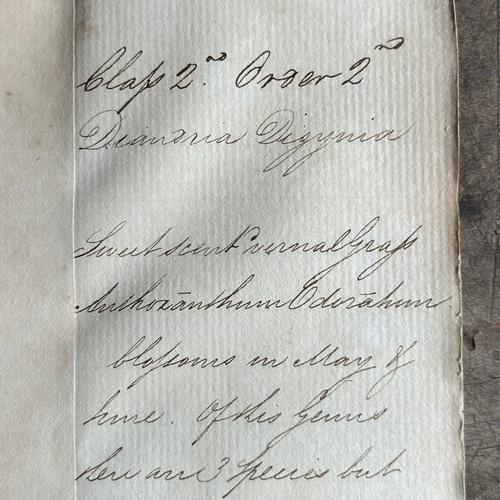 Claſs 2.nd Order 2nd
Diandria Digynia
Sweet scentd vernal Graſs
Anthoxānthum Odorātum.
bloſsoms in May &
June. Of this Genus
there are 3 Species but